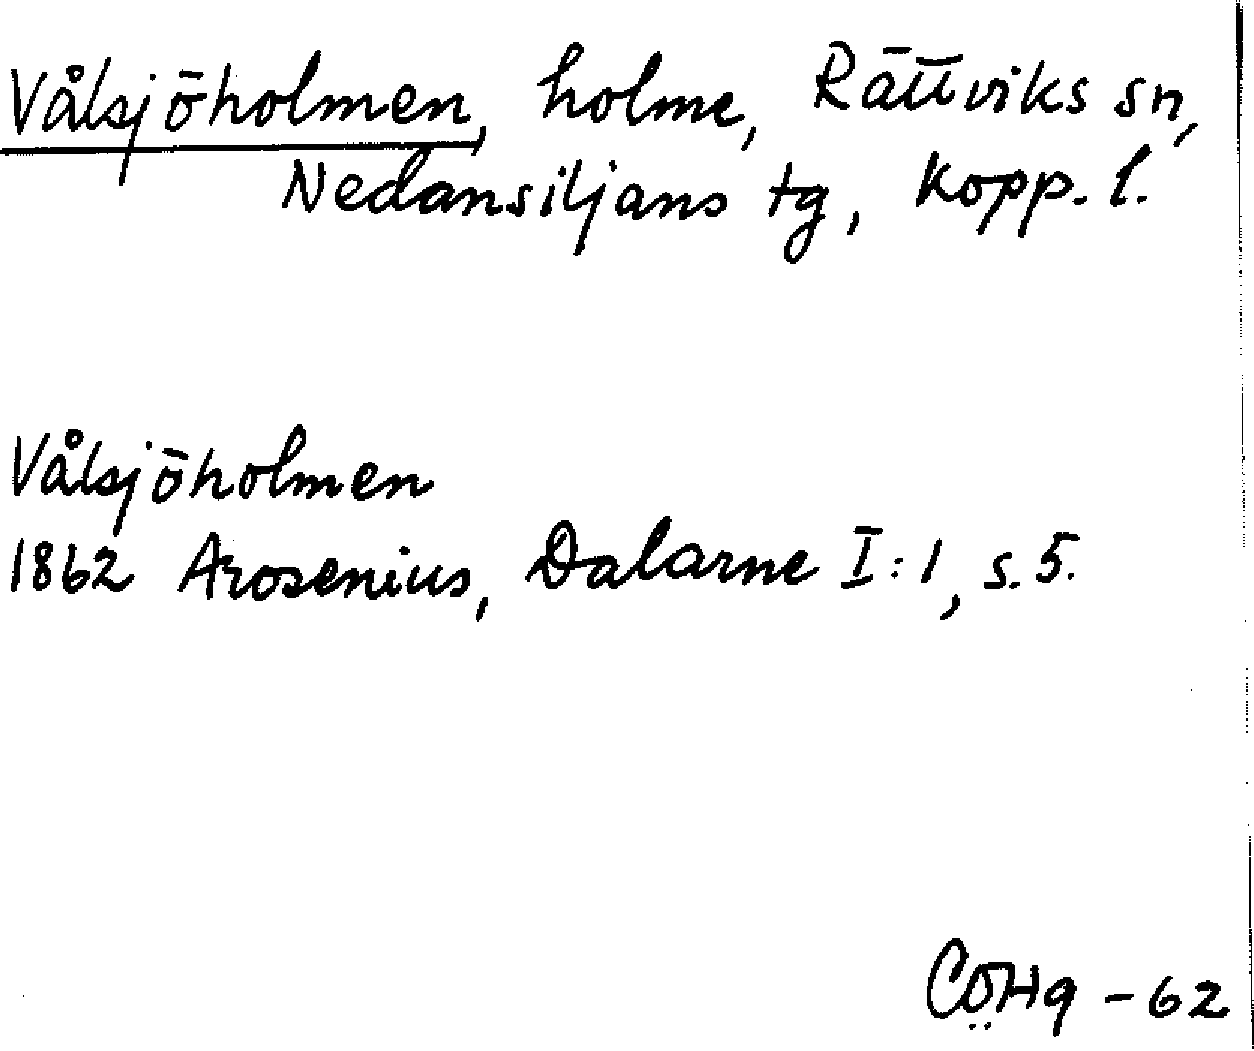 Vålsjöholmen, holme, Rättviks sn,
Nedansiljans tg, Kopp. l.
Vålsjöholmen
1862 Arosenius, Dalarne I:1, s. 5.
-62